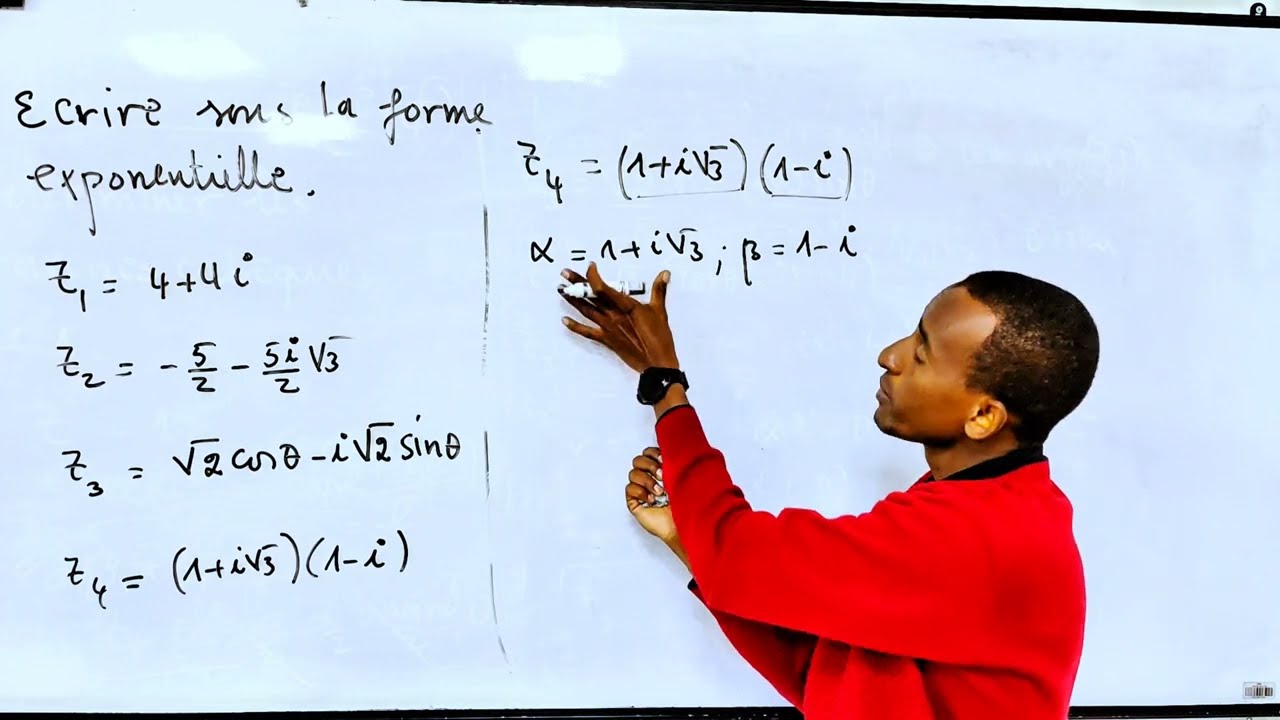 Ecrire sous la forme
exponentielle.
z₁ = 4+4i
z₂ = -5/2 - 5i/2 √3
z₃ = √2 cosθ - i√2 sinθ
z₄ = (1+i√3)(1-i)
z₄ = (1+i√3)(1-i)
α = 1+i√3 ; β = 1-i